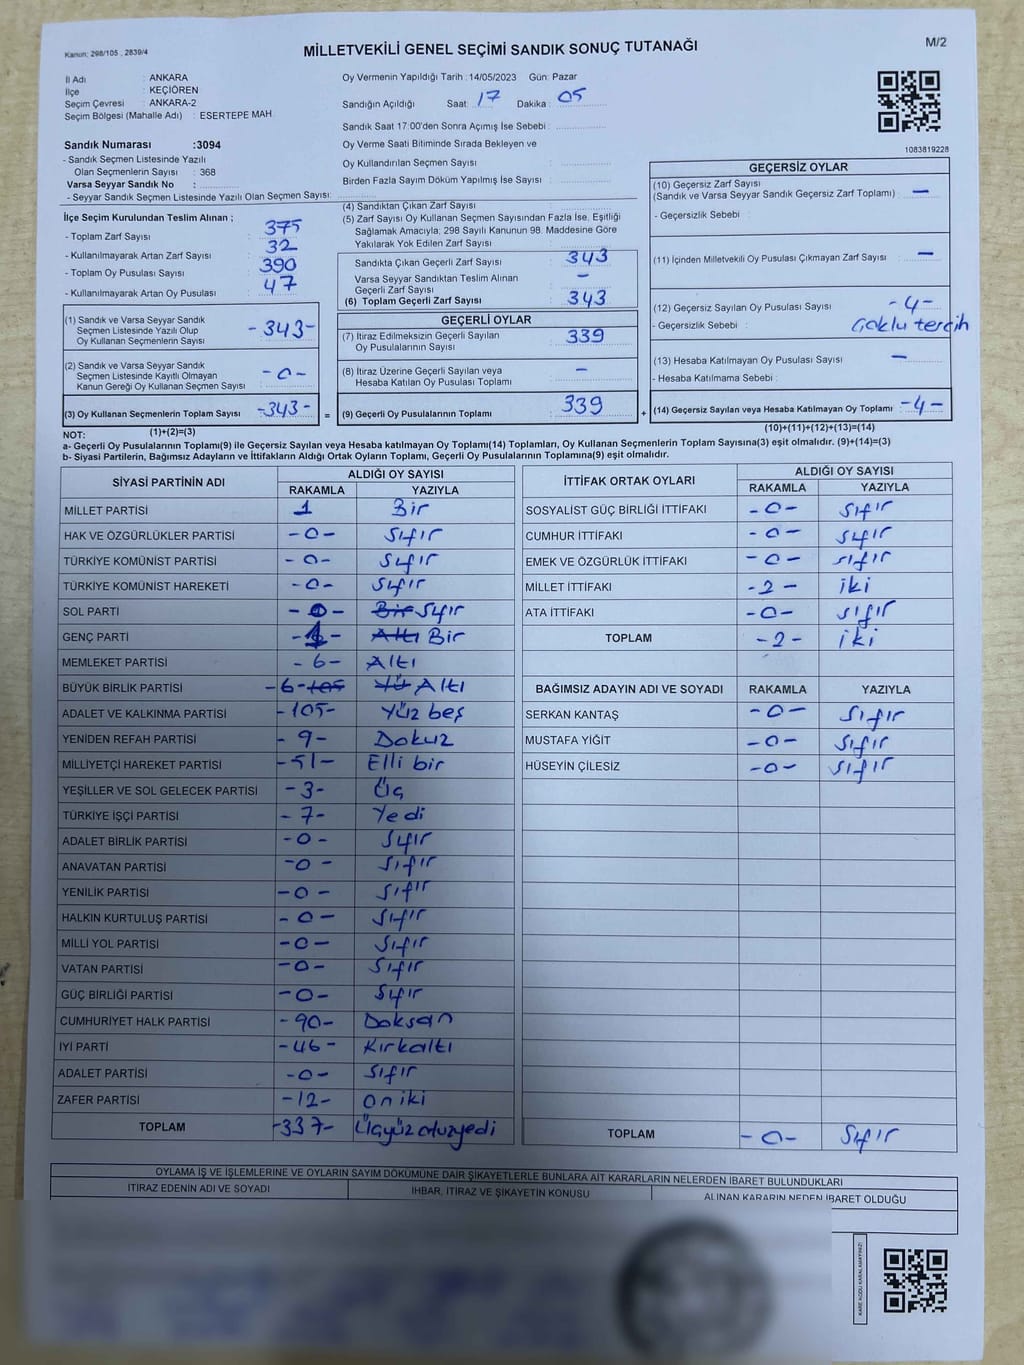 Kanun: 298/105 , 2839/4
MİLLETVEKİLİ GENEL SEÇİMİ SANDIK SONUÇ TUTANAĞI
M/2
İl Adı : ANKARA
İlçe : KEÇİÖREN
Seçim Çevresi : ANKARA-2
Seçim Bölgesi (Mahalle Adı) : ESERTEPE MAH
Sandık Numarası :3094
- Sandık Seçmen Listesinde Yazılı
Olan Seçmenlerin Sayısı : 368
Varsa Seyyar Sandık No :
- Seyyar Sandık Seçmen Listesinde Yazılı Olan Seçmen Sayısı:
Oy Vermenin Yapıldığı Tarih :14/05/2023 Gün: Pazar
Sandığın Açıldığı Saat: 17 Dakika : 05
Sandık Saat 17:00'den Sonra Açımış İse Sebebi :
Oy Verme Saati Bitiminde Sırada Bekleyen ve
Oy Kullandırılan Seçmen Sayısı :
Birden Fazla Sayım Döküm Yapılmış İse Sayısı :
1083819228
İlçe Seçim Kurulundan Teslim Alınan ;
- Toplam Zarf Sayısı : 375
- Kullanılmayarak Artan Zarf Sayısı : 32
- Toplam Oy Pusulası Sayısı : 390
- Kullanılmayarak Artan Oy Pusulası : 47
(1) Sandık ve Varsa Seyyar Sandık
Seçmen Listesinde Yazılı Olup
Oy Kullanan Seçmenlerin Sayısı : -343-
(2) Sandık ve Varsa Seyyar Sandık
Seçmen Listesinde Kayıtlı Olmayan
Kanun Gereği Oy Kullanan Seçmen Sayısı : -0-
(3) Oy Kullanan Seçmenlerin Toplam Sayısı : -343- =
(4) Sandıktan Çıkan Zarf Sayısı :
(5) Zarf Sayısı Oy Kullanan Seçmen Sayısından Fazla İse, Eşitliği
Sağlamak Amacıyla; 298 Sayılı Kanunun 98. Maddesine Göre
Yakılarak Yok Edilen Zarf Sayısı :
Sandıkta Çıkan Geçerli Zarf Sayısı : 343
Varsa Seyyar Sandıktan Teslim Alınan
Geçerli Zarf Sayısı : -
(6) Toplam Geçerli Zarf Sayısı : 343
GEÇERLİ OYLAR
(7) İtiraz Edilmeksizin Geçerli Sayılan
Oy Pusulalarının Sayısı : 339
(8) İtiraz Üzerine Geçerli Sayılan veya
Hesaba Katılan Oy Pusulası Toplamı : -
(9) Geçerli Oy Pusulalarının Toplamı : 339 +
GEÇERSİZ OYLAR
(10) Geçersiz Zarf Sayısı
(Sandık ve Varsa Seyyar Sandık Geçersiz Zarf Toplamı) : -
- Geçersizlik Sebebi :
(11) İçinden Milletvekili Oy Pusulası Çıkmayan Zarf Sayısı : -
(12) Geçersiz Sayılan Oy Pusulası Sayısı : -4-
- Geçersizlik Sebebi : Çoklu tercih
(13) Hesaba Katılmayan Oy Pusulası Sayısı : -
- Hesaba Katılmama Sebebi :
(14) Geçersiz Sayılan veya Hesaba Katılmayan Oy Toplamı : -4-
(10)+(11)+(12)+(13)=(14)
NOT: (1)+(2)=(3)
a- Geçerli Oy Pusulalarının Toplamı(9) ile Geçersiz Sayılan veya Hesaba katılmayan Oy Toplamı(14) Toplamları, Oy Kullanan Seçmenlerin Toplam Sayısına(3) eşit olmalıdır. (9)+(14)=(3)
b- Siyasi Partilerin, Bağımsız Adayların ve İttifakların Aldığı Ortak Oyların Toplamı, Geçerli Oy Pusulalarının Toplamına(9) eşit olmalıdır.
SİYASİ PARTİNİN ADI ALDIĞI OY SAYISI
RAKAMLA YAZIYLA
MİLLET PARTİSİ 1 Bir
HAK VE ÖZGÜRLÜKLER PARTİSİ -0- Sıfır
TÜRKİYE KOMÜNİST PARTİSİ -0- Sıfır
TÜRKİYE KOMÜNİST HAREKETİ -0- Sıfır
SOL PARTİ -0- Bir Sıfır
GENÇ PARTİ -1- Altı Bir
MEMLEKET PARTİSİ -6- Altı
BÜYÜK BİRLİK PARTİSİ -6- 105 Yü Altı
ADALET VE KALKINMA PARTİSİ -105- Yüz beş
YENİDEN REFAH PARTİSİ -9- Dokuz
MİLLİYETÇİ HAREKET PARTİSİ -51- Elli bir
YEŞİLLER VE SOL GELECEK PARTİSİ -3- Üç
TÜRKİYE İŞÇİ PARTİSİ -7- Yedi
ADALET BİRLİK PARTİSİ -0- Sıfır
ANAVATAN PARTİSİ -0- Sıfır
YENİLİK PARTİSİ -0- Sıfır
HALKIN KURTULUŞ PARTİSİ -0- Sıfır
MİLLİ YOL PARTİSİ -0- Sıfır
VATAN PARTİSİ -0- Sıfır
GÜÇ BİRLİĞİ PARTİSİ -0- Sıfır
CUMHURİYET HALK PARTİSİ -90- Doksan
İYİ PARTİ -46- Kırkaltı
ADALET PARTİSİ -0- Sıfır
ZAFER PARTİSİ -12- on iki
TOPLAM -337- Üçyüzotuzyedi
İTTİFAK ORTAK OYLARI ALDIĞI OY SAYISI
RAKAMLA YAZIYLA
SOSYALİST GÜÇ BİRLİĞİ İTTİFAKI -0- Sıfır
CUMHUR İTTİFAKI -0- Sıfır
EMEK VE ÖZGÜRLÜK İTTİFAKI -0- sıfır
MİLLET İTTİFAKI -2- iki
ATA İTTİFAKI -0- sıfır
TOPLAM -2- iki
BAĞIMSIZ ADAYIN ADI VE SOYADI RAKAMLA YAZIYLA
SERKAN KANTAŞ -0- Sıfır
MUSTAFA YİĞİT -0- Sıfır
HÜSEYİN ÇİLESİZ -0- sıfır
TOPLAM -0- Sıfır
OYLAMA İŞ VE İŞLEMLERİNE VE OYLARIN SAYIM DÖKÜMÜNE DAİR ŞİKAYETLERLE BUNLARA AİT KARARLARIN NELERDEN İBARET BULUNDUKLARI
İTİRAZ EDENİN ADI VE SOYADI İHBAR, İTİRAZ VE ŞİKAYETİN KONUSU ALINAN KARARIN NEDEN İBARET OLDUĞU
KARE KODU KARALAMAYINIZ!